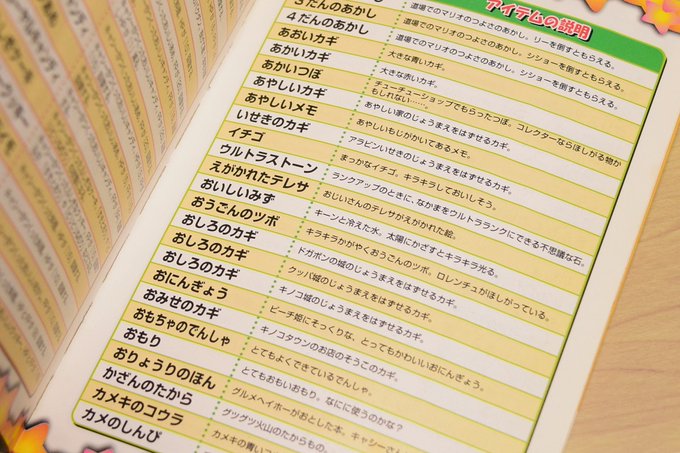 アイテムの説明
3だんのあかし 道場でのマリオのつよさのあかし。リーを倒すともらえる。
4だんのあかし 道場でのマリオのつよさのあかし。シショーを倒すともらえる。
道場でのマリオのつよさのあかし。シショーを倒すともらえる。
あおいカギ 大きな青いカギ。
あかいカギ 大きな赤いカギ。
あかいつぼ チューチューショップでもらったつぼ。コレクターならほしがる物か
もしれない……。
あやしいカギ あやしい家のじょうまえをはずせるカギ。
あやしいメモ あやしいもじがかいてあるメモ。
いせきのカギ アラビンいせきのじょうまえをはずせるカギ。
イチゴ まっかなイチゴ。キラキラしておいしそう。
ウルトラストーン ランクアップのときに、なかまをウルトラランクにできる不思議な石。
えがかれたテレサ おじいさんのテレサがえがかれた絵。
おいしいみず キーンと冷えた水。太陽にかざすとキラキラ光る。
おうごんのツボ キラキラかがやくおうごんのツボ。ロレンチュがほしがっている。
おしろのカギ ドガボンの城のじょうまえをはずせるカギ。
おしろのカギ クッパ城のじょうまえをはずせるカギ。
おしろのカギ キノコ城のじょうまえをはずせるカギ。
おにんぎょう ピーチ姫にそっくりな、とってもかわいいおにんぎょう。
おみせのカギ キノコタウンのお店のそうこのカギ。
おもちゃのでんしゃ とてもよくできているでんしゃ。
おもり とてもおもいおもり。なにに使うのかな？
おりょうりのほん グルメヘイホーがおとした本。キャシーさん
かざんのたから グツグツ火山のたからもの。
カメキのコウラ カメキの青いコ
カメのしんぴ